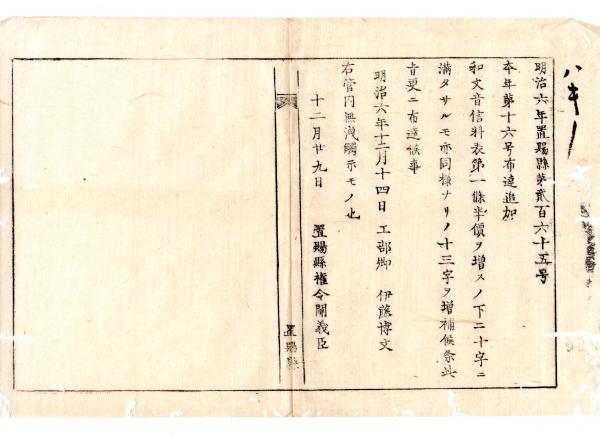 ハキ
明治六年置賜縣第貳百六十五号
本年第十六号布達追加
和文音信料表第一條半價ヲ増スノ下二十字ニ
満タサルモ亦同様ナリノ十三字ヲ増補候条此
旨更ニ布達候事
明治六年十二月十四日 工部卿 伊藤博文
右管内無洩觸示モノ也
十二月廿九日 置賜縣權令關義臣
置賜縣